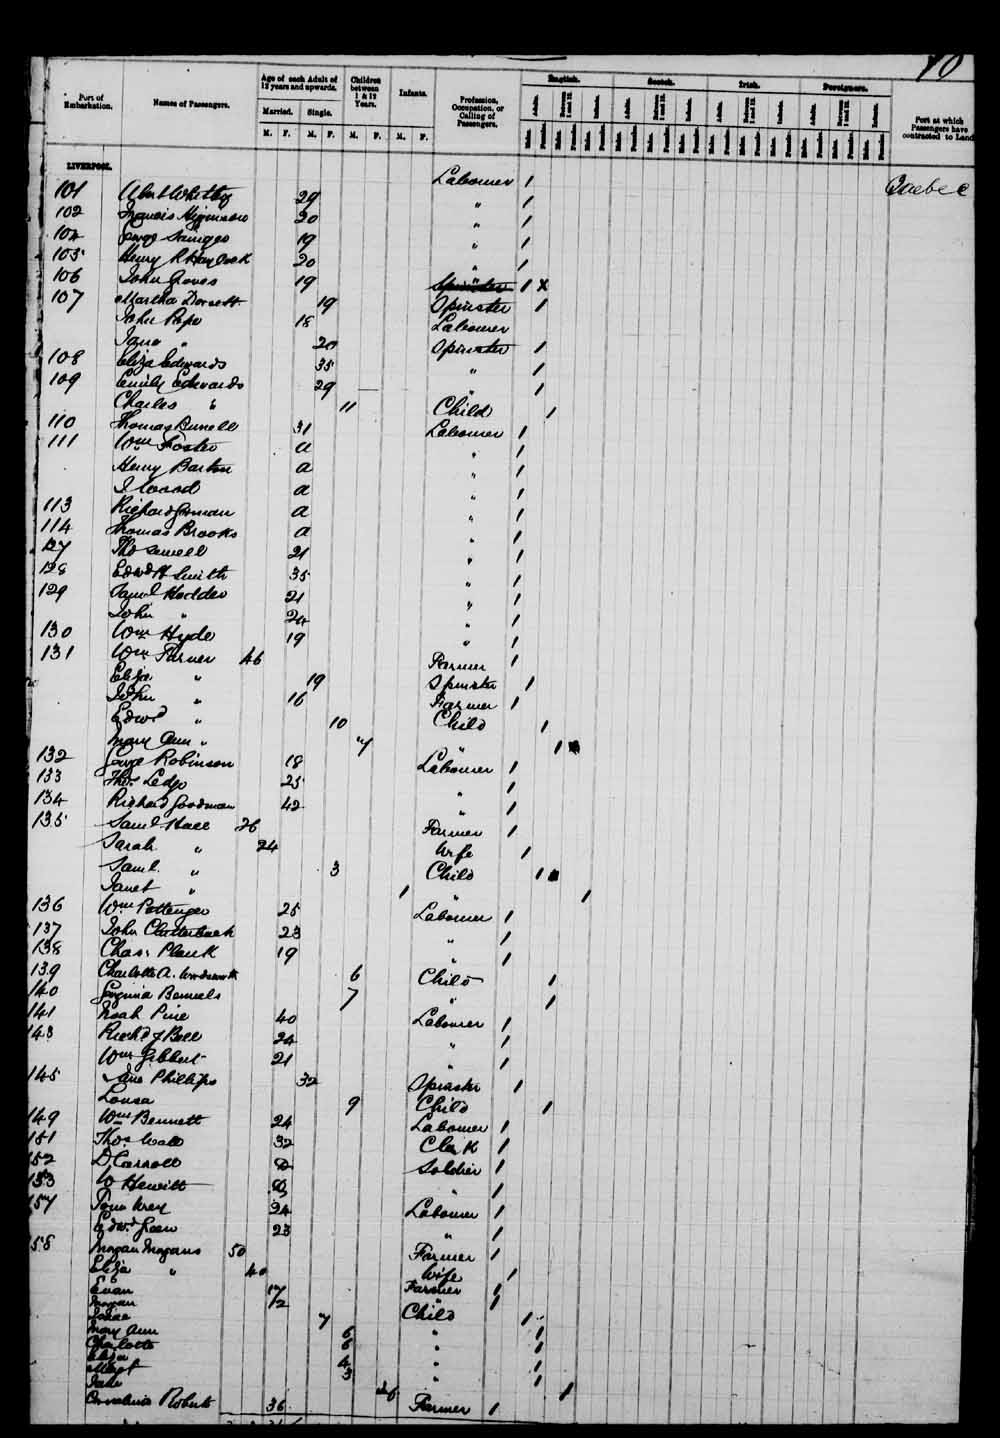 10
Port of Embarkation. Names of Passengers. Age of each Adult of 12 years and upwards. Children between 1 & 12 Years. Infants. Profession, Occupation, or Calling of Passengers. English. Scotch. Irish. Foreigners. Port at which Passengers have contracted to Land
Married. Single.
M. F. M. F. M. F. M. F.
LIVERPOOL.
101 Albert Whitby 29 Labourer 1 Quebec
102 Francis 20 " 1
104 George 19 " 1
105 Henry R Haylock 20 " 1
106 John Groves 19 " 1 x
107 Martha Dorsett 19 Spinster 1
John Pope 18 Labourer
Jane " 20 Spinster 1
108 Eliza Edwards 35 " 1
109 Emily Edwards 29 " 1
Charles " 11 Child 1
110 Thomas 31 Labourer 1
111 Wm Foster a " 1
Henry Barton a " 1
J Wood a " 1
113 Richard a " 1
114 Thomas Brooks a " 1
127 Tho Sewell 21 " 1
128 Edwd H Smith 35 " 1
129 Saml 21 " 1
John " 24 " 1
130 Wm Hyde 19 " 1
131 Wm 46 Farmer 1
Eliza " 19 Spinster 1
John " 16 Farmer 1
Edwd " 10 Child 1
Mary Ann " 7 " 1
132 George Robinson 18 Labourer 1
133 Thos Ledge 25 " 1
134 Richard Goodman 42 " 1
135 Saml Hall 26 Farmer 1
Sarah " 24 Wife 1
Saml " 3 Child 1
Janet " 1 " 1
136 Wm Pottenger 25 Labourer 1
137 John Clutterbuck 23 " 1
138 Chas. Plank 19 " 1
139 Charlotte A. 6 Child 1
140 7 " 1
141 Noah Pine 40 Labourer 1
143 Richd J Bell 24 " 1
Wm Gibbert 21 " 1
145 Jane Phillips 32 Spinster 1
Louisa 9 Child 1
149 Wm Bennett 24 Labourer 1
151 Thos Wall 32 Clerk 1
152 D Carroll a Soldier 1
153 W Hewitt a " 1
157 24 Labourer 1
Edwd Green 23 " 1
158 Morgan Morgans 50 Farmer 1
Eliza " 40 Wife 1
Evan 17 Farmer 1
Morgan 12 " 1
7 Child 1
Mary Ann 6 " 1
Charlotte 6 " 1
Eliza 4 " 1
3 " 1
1
Roberts 36 Farmer 1